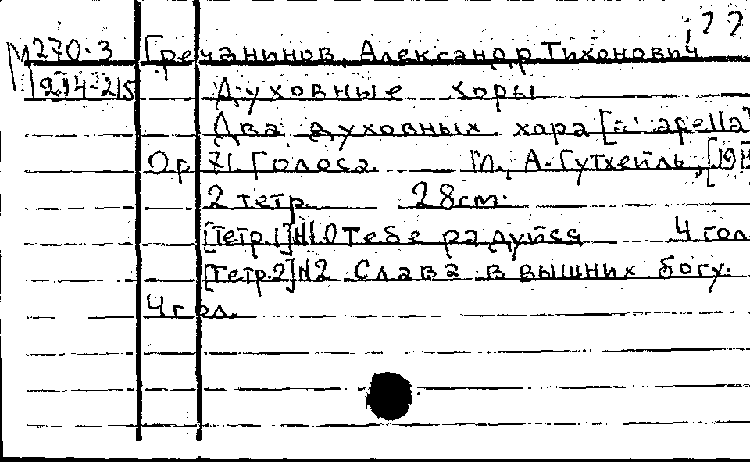 22
М270-3 Гречанинов, Александр Тихонович
214-215 Духовные хоры
Два духовных хора [a' apella]
Ор 71. Голоса. М., А. Гутхейль, [19
2 тетр. 28 cm.
[Тетр. 1] №1. О Тебе радуйся 4 гол
[Тетр. 2] №2 Слава в вышних богу.
4 гол.